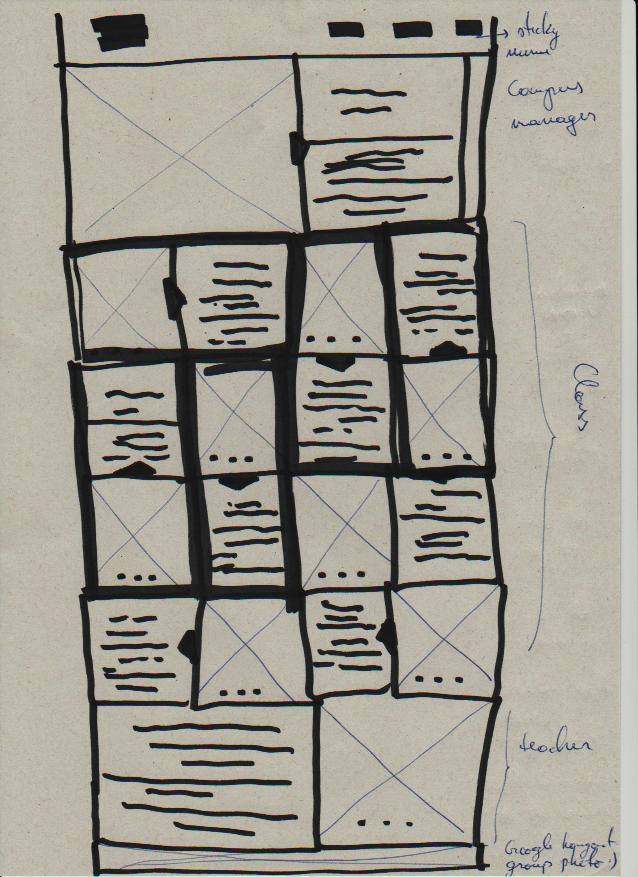 sticky
menu
Campus
manager
Class
teacher
Google hangout
group photo :)